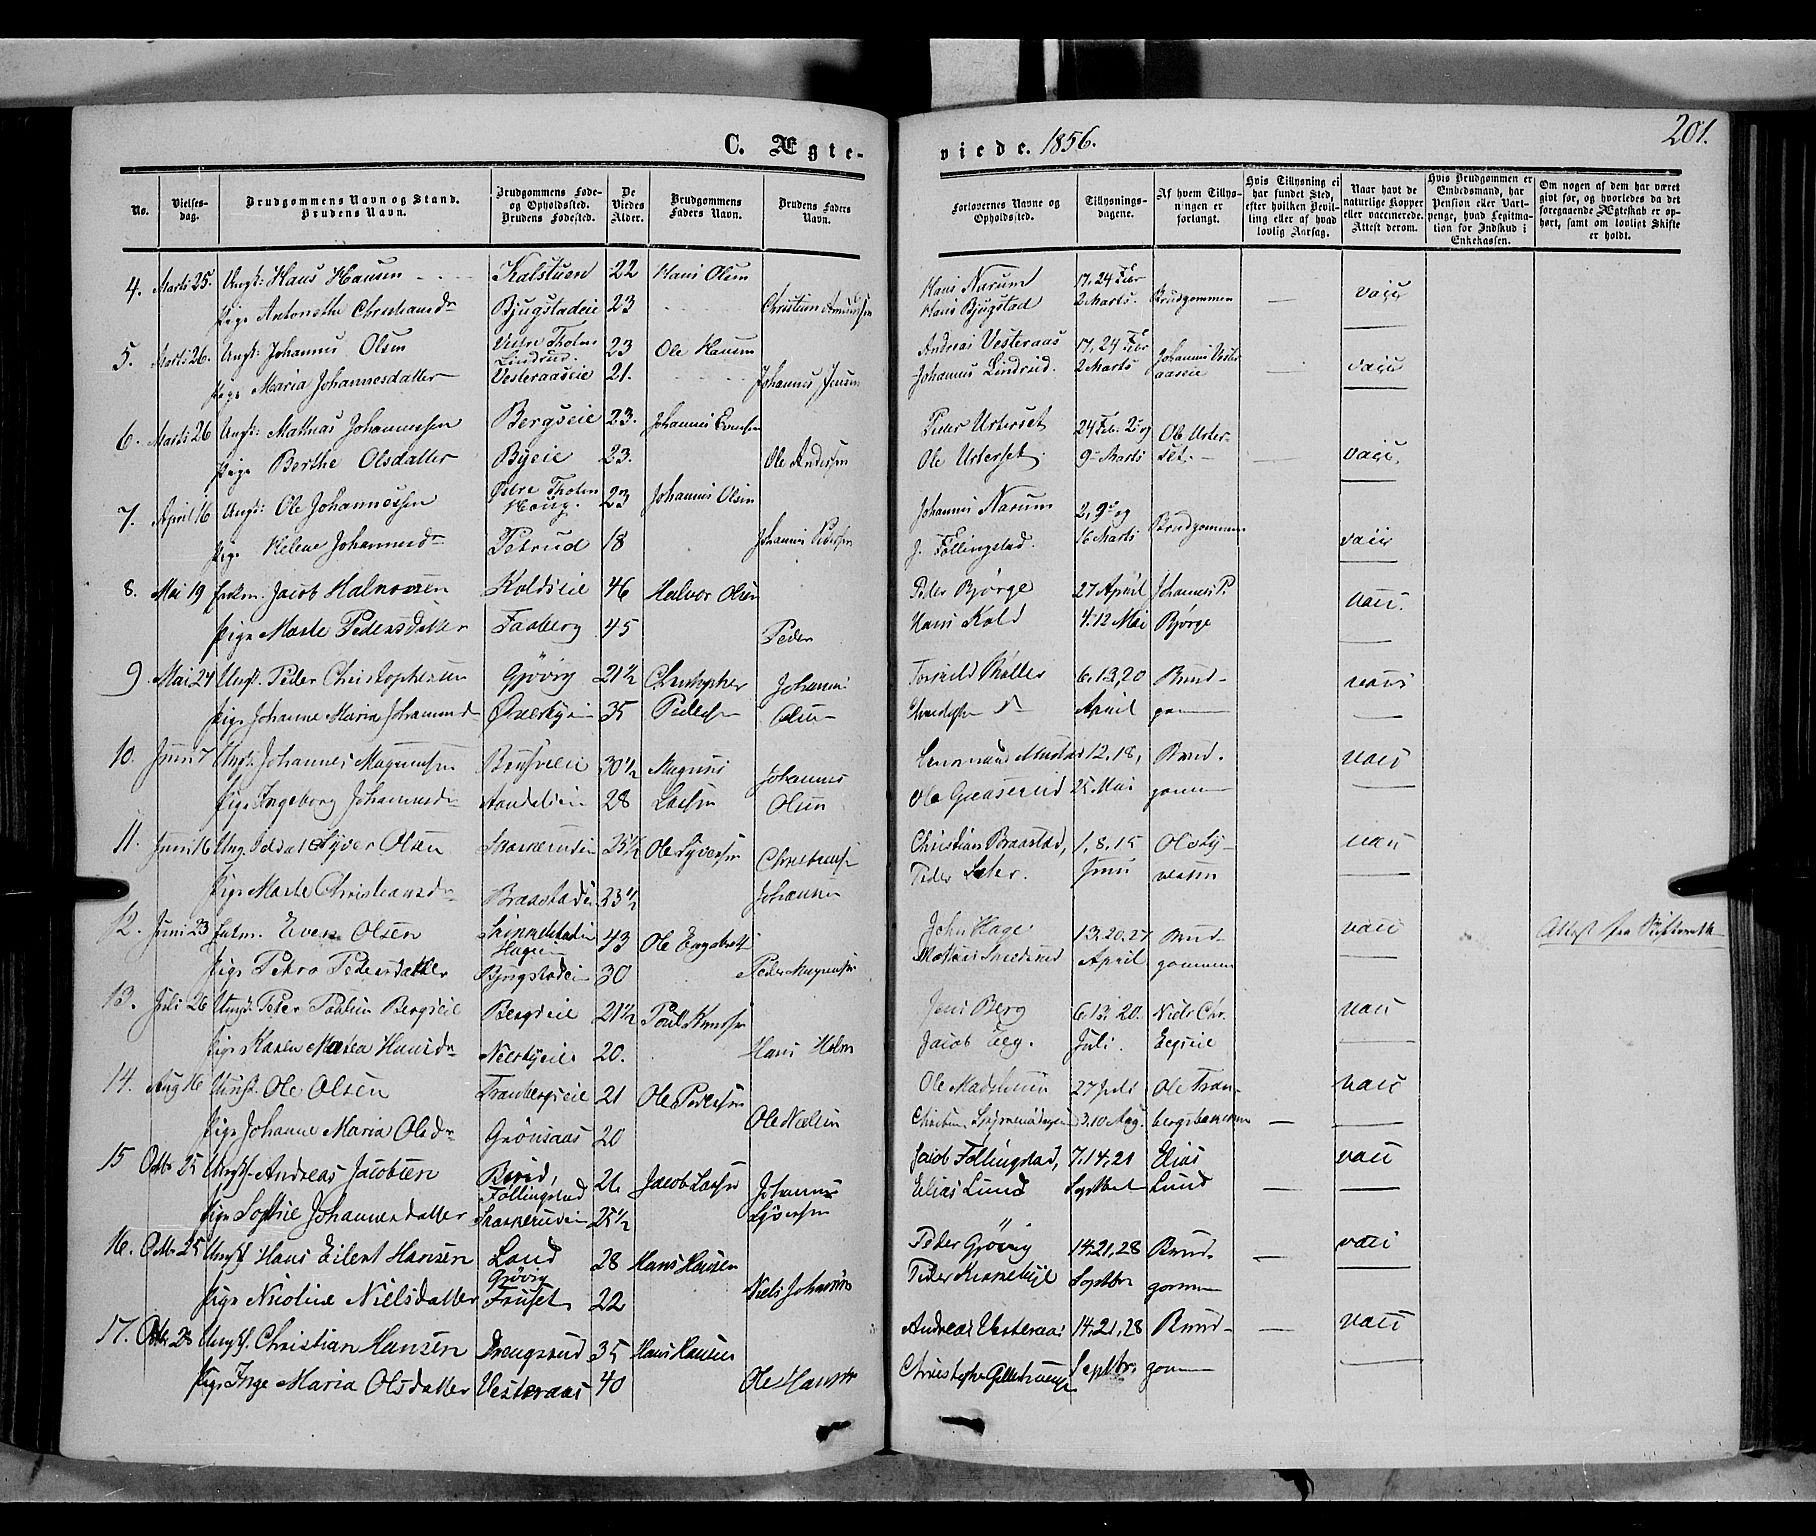 C. Ægte-
viede. 1856.
201.
No.
Vielses-
dag.
Brudgommens Navn og Stand.
Brudens Navn.
Brudgommens Føde-
og Opholdssted.
Brudens Fødested.
De
Viedes
Alder.
Brudgommens
Faders Navn.
Brudens Faders
Navn.
Forlovernes Navne og
Opholdssted.
Tillysnings-
dagene.
Af hvem Tillys-
ningen er
forlangt.
Hvis Tillysning ei
har fundet Sted,
efter hvilken Bevil-
ling eller af hvad
lovlig Aarsag.
Naar havt de
naturlige Kopper
eller vaccinerede.
Attest derom.
Hvis Brudgommen er
Embedsmand, har
Pension eller Vart-
penge, hvad Legitima-
tion for Indskud i
Enkekassen.
Om nogen af dem har været
gift før, og hvorledes da det
foregaaende Ægteskab er op-
hørt, samt om lovligt Skifte
er holdt.
4. Marts 25. Ungk: Hans Hansen Kalstuen 22 Hans Olsen Hans Narum 17, 24 Febr
Pige Antonethe Christiansdr Bjugstadeie 23 Christian Amundsen Hans Bjugstad 2 Marts. Brudgommen — vacc
5. Marts 26. Ungk: Johannes Olsen Vestre Thoten Lindrud. 23 Ole Hansen Andreas Vesteraas 17, 24 Febr Johannes Vester
Pige Maria Johannesdatter Vesteraaseie 21. Johannes Jensen Johannes Lindrud. 2 Marts aaseie — vacc
6. Marts 26 Ungk: Mathias Johannessen Bergseie 23. Johannes Evensen Peder Urterset 24 Feb. 2 og Ole Urter-
Pige Berthe Olsdatter Byeie 23. Ole Andersen Ole Urterset. 9 Marts set. — vacc.
7. April 16 Ungk: Ole Johannessen Østre Thoten Haug. 23 Johannes Olsen Johannes Narum 2, 9 og Brudgommen
Pige Helene Johannesdr Petrud 18 Johannes Pedersen J. Føllingstad. 16 Marts vacc
8. Mai 19 Enkm. Jacob Halvorsen Koldseie 46 Halvor Olsen Peder Bjørge 27 April Johannes P.
Pige Marte Pedersdatter Faaberg 45 Peder Hans Kold 4. 12 Mai Bjørge vacc.
9. Mai 24 Ungk. Peder Christophersen Gjøvig 21½ Christopher Johannes 6. 13, 20 Brud-
Pige Johanne Maria Johannesd Øverbyeie 35 Pedersen Olsen April gommen vacc
10. Juni 7 Ungk. Johannes Magnussen 30½ Magnus Johannes 12, 18, Brud-
Pige Ingeborg Johannesdr 28 Larsen Olsen Ole Gaaserud 25 Mai gommen vacc
11. Juni 16 Ung. Soldat Syver Olsen Skarkerudeie 25½ Ole Syversen Christian Braastad, 1, 8, 15 Ole Sy-
Pige Marte Christiansdr Braastadeie 23½ Christiansen Johannsen Peder Juni versen vacc
12. Juni 23 Enkm. Even Olsen Skikkelstadeie Hageeie 43 Ole Engebrets John Hage 13. 20. 27 Brud-
Pige Petra Pedersdatter Bjugstadeie 30 Peder Magnussen Mathias Smedsrud April gommen vacc Attest fra Skifteretten
13. Juli 26 Ungk. Peder Paulsen Bergseie Bergseie 21½ Poul Knutsen Jens Berg 6. 13. 20. Niels Chr.
Pige Karen Mathea Hansdr Nerbyeie 20. Hans Holm Jacob Eeg. Juli. Eegseie vacc
14. Aug 16 Ungk. Ole Olsen Tranbergseie 21 Ole Pedersen Ole Madstuen 27 Juli Ole Tran-
Pige Johanne Maria Olsdr Grønsaas 20 Ole Nielsen Christian 3. 10 Aug. bergsbakken — vacc
15 Octbr 25 Ungk. Andreas Jacobsen Biri, Føllingstad 26 Jacob Larsen Johannes Jacob Føllingstad, 7. 14, 21 Elias
Pige Sophie Johannesdatter Skarkerudeie 25½ Syversen Elias Lund Septbr Lund — vacc
16. Octbr 25 Ungk Hans Eilert Hansen Land Gjøvig 28 Hans Hansen Peder Gjøvig 14. 21, 28 Brud-
Pige Nicoline Nielsdatter Fruset 22 Niels Johannes Peder Kinnehøje Septbr gommen — vacc
17. Octbr 28 Ungk. Christian Hansen Drengsrud 35 Hans Hansen Andreas Vesteraas 14. 21, 28 Brud-
Pige Inge Maria Olsdatter Vesteraas 40 Ole Hansen Christopher Septbr. gommen — vacc